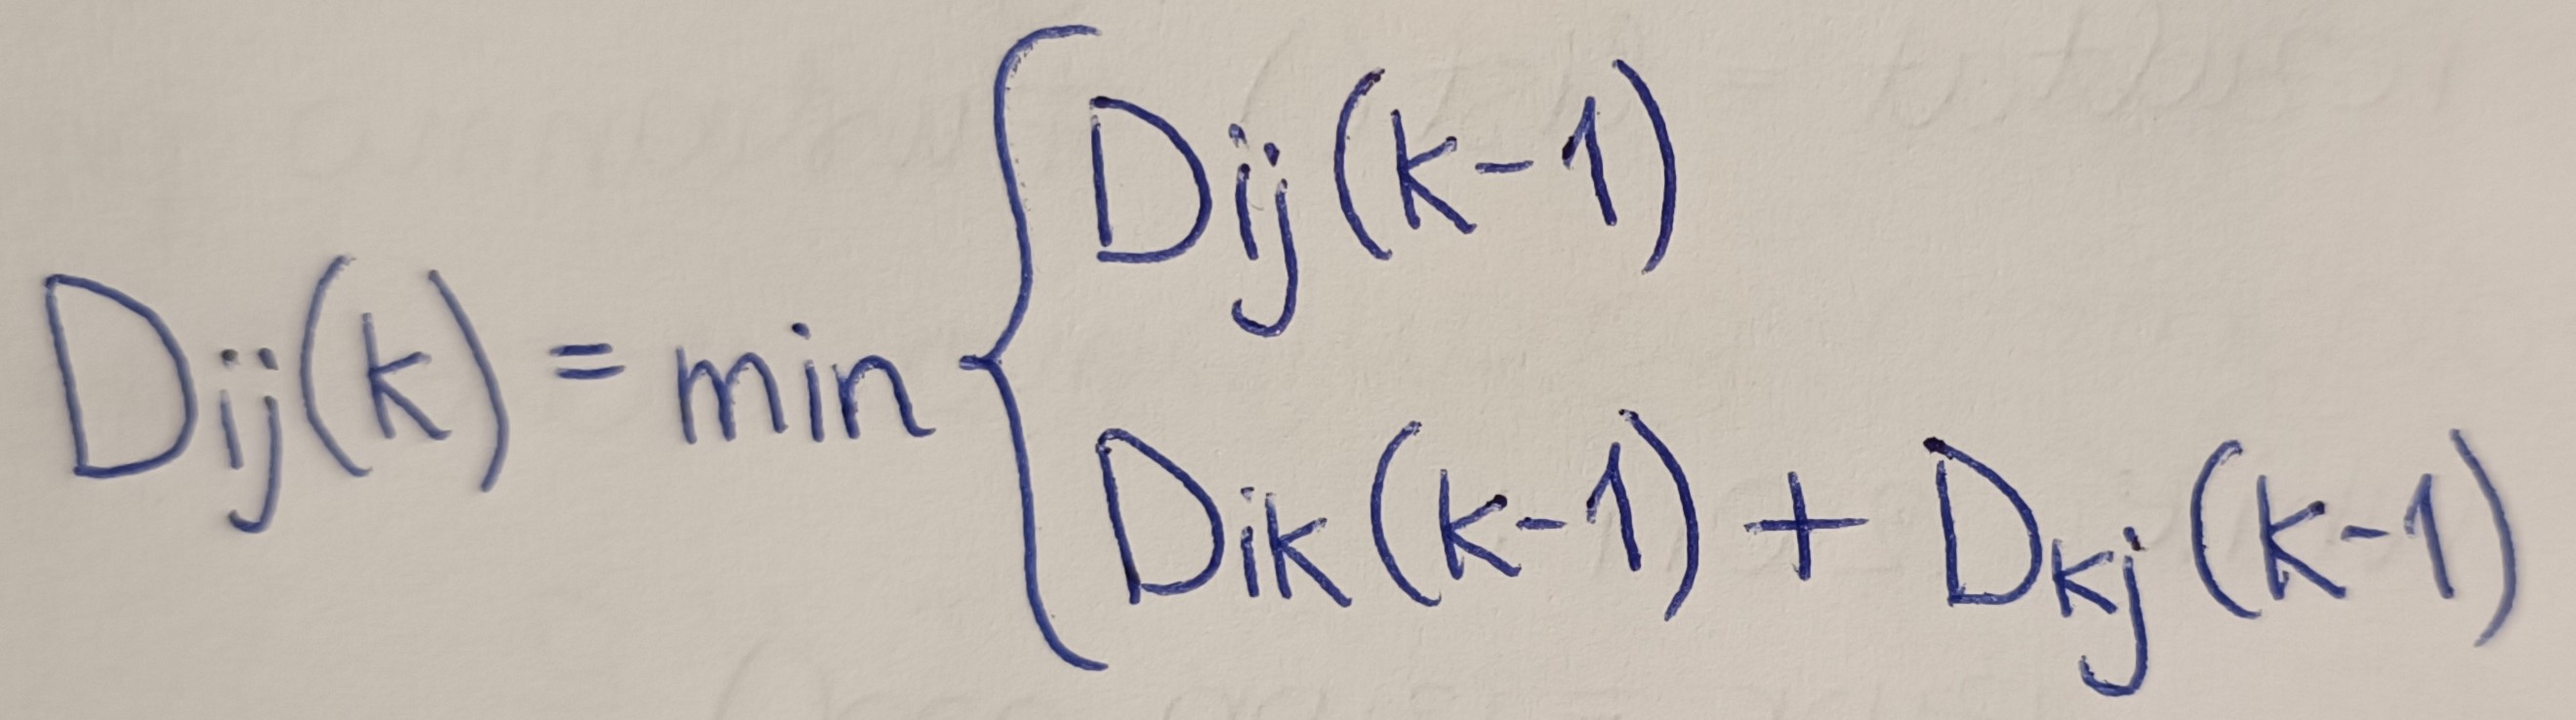 Dij(k) = min {
Dij(k-1)
Dik(k-1) + Dkj(k-1)